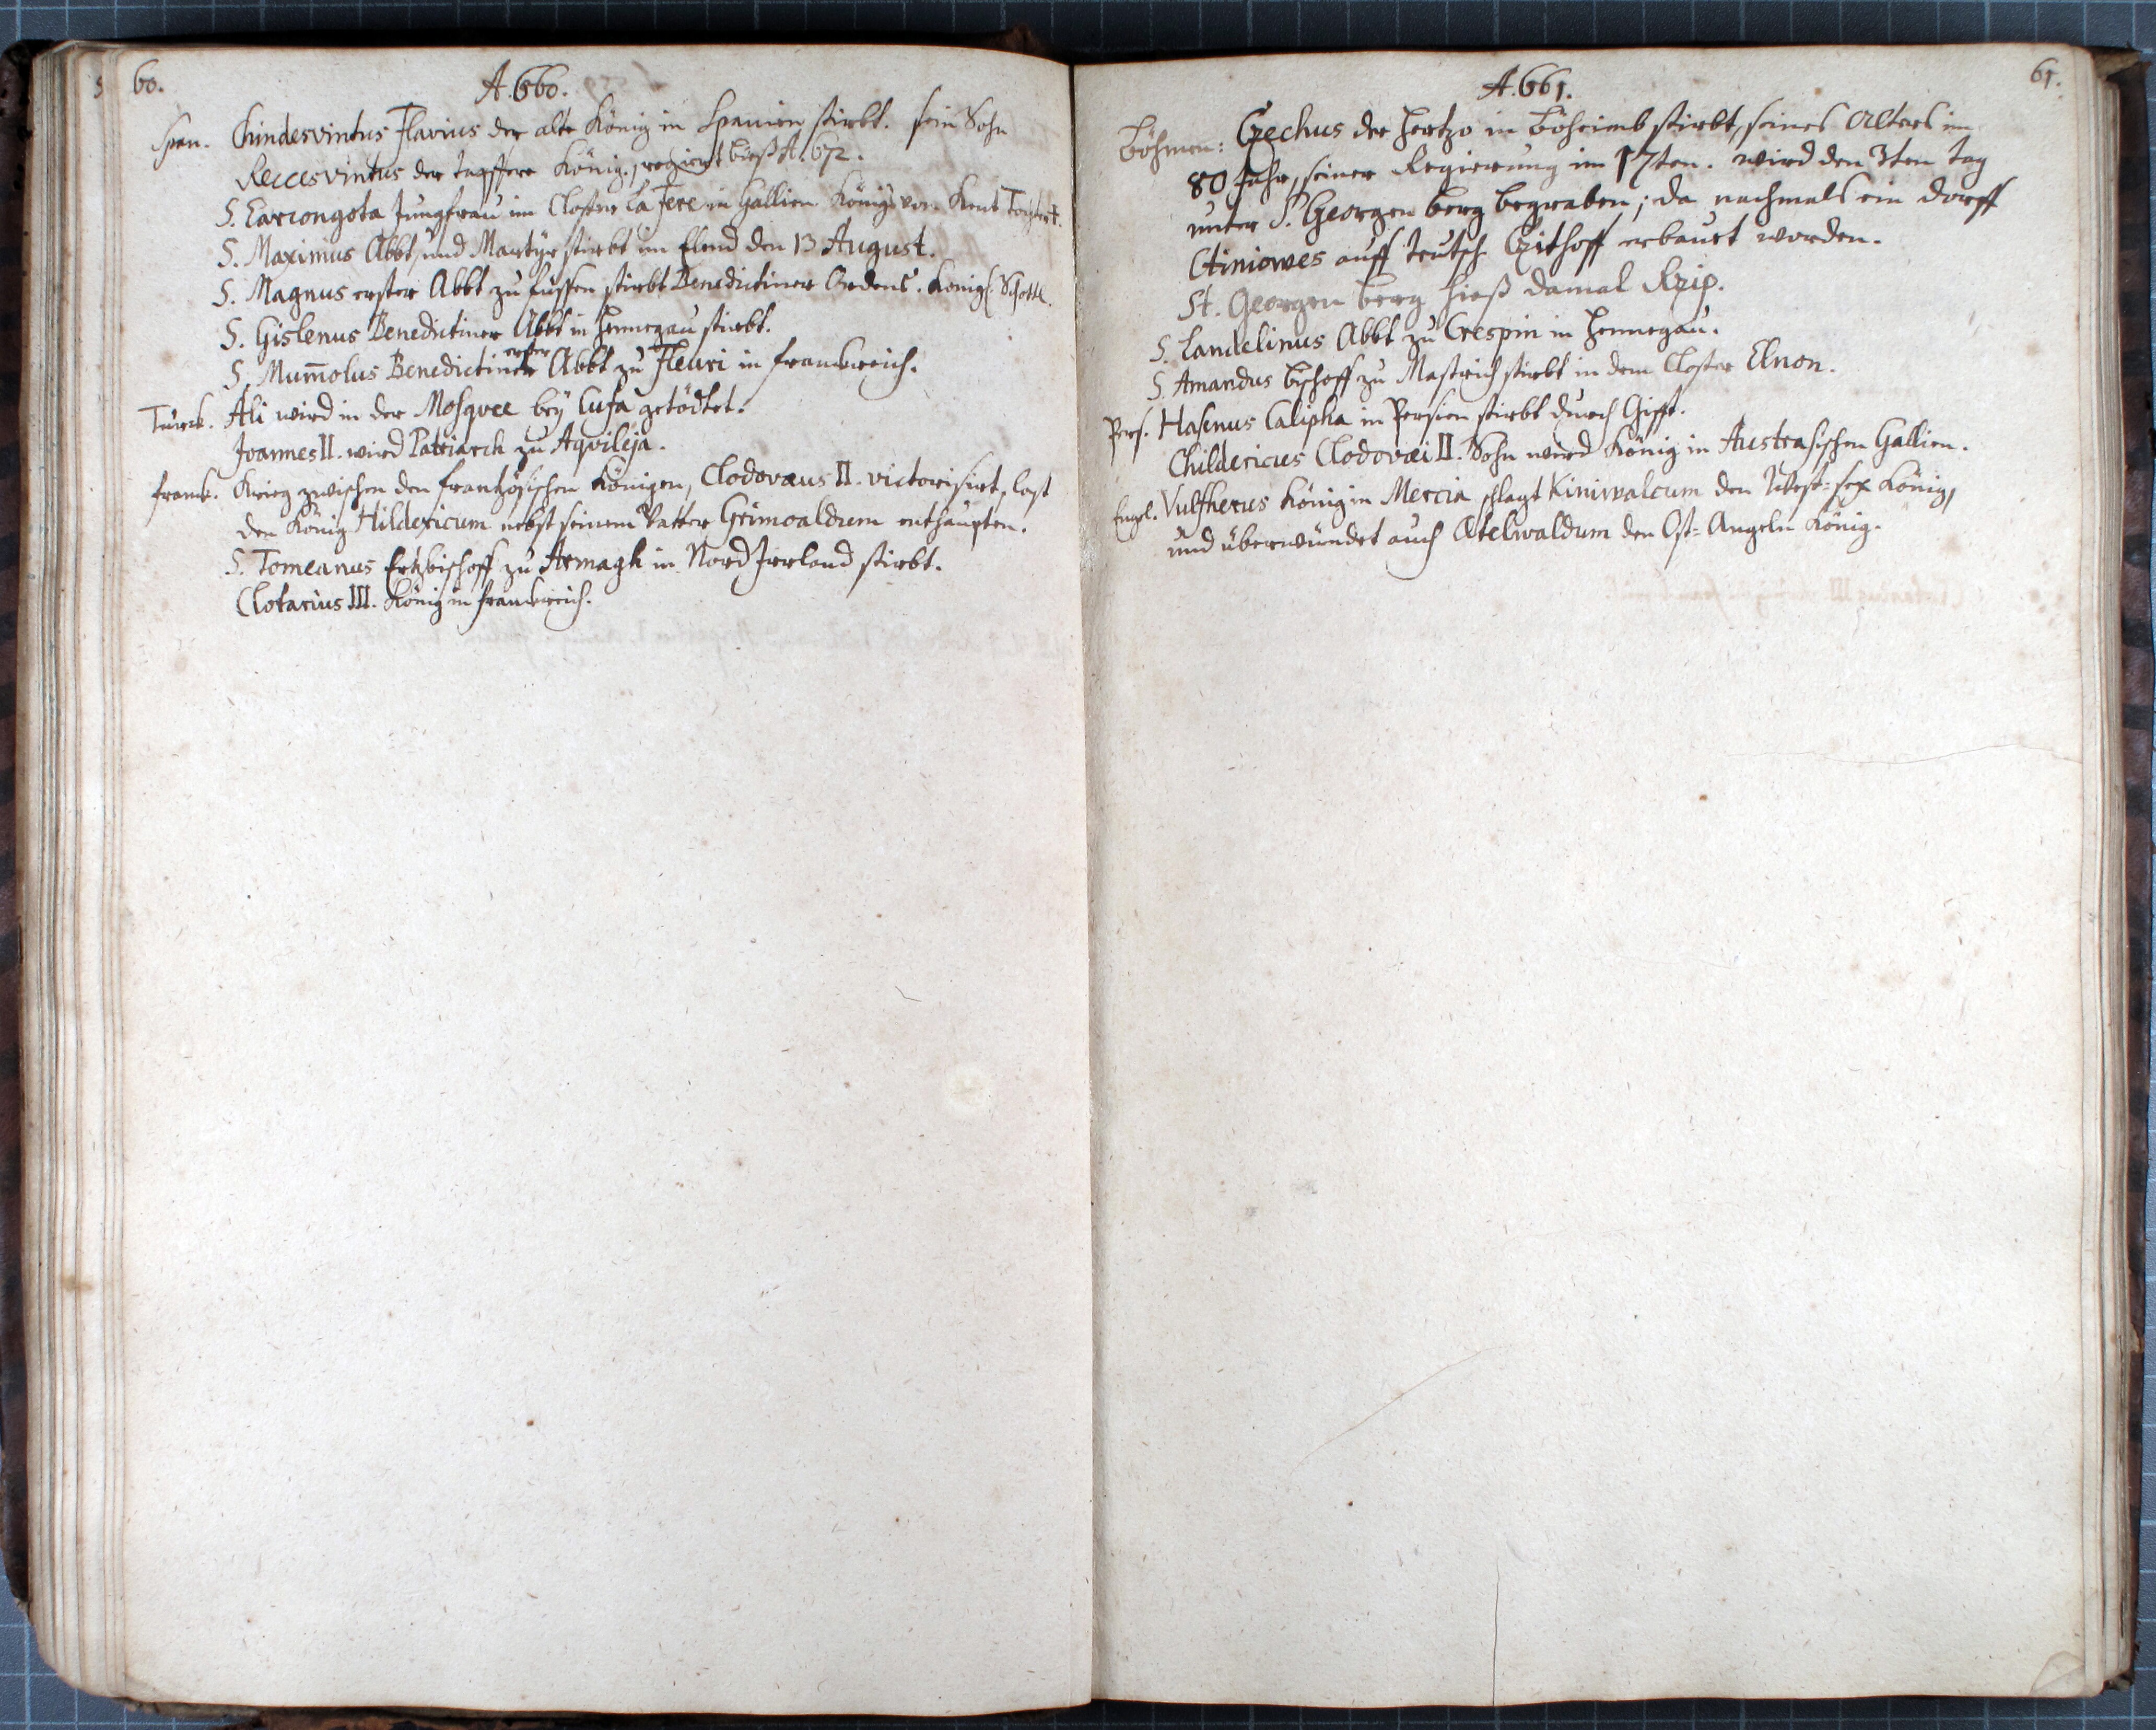 60.
A. 660.
Span. Chindesvintus Flavius der alte König in Spanien stirbt. sein Sohn
Reccesvintus der tapffere König, regiert bieß A. 672.
S. Earcongota Jungfrau im Closter La Fere in Gallien Königs von Kent Tochter †.
S. Maximus Abbt und Martyr stirbt im Elend den 13 August.
S. Magnus erster Abbt zu Fussen stirbt Benedictiner Ordens. Königl. Schott.
S. Gislenus Benedictiner Abbt in Hennegau stirbt.
S. Mum̄olus Benedictiner erster Abbt zu Fleuri in Franckreich.
Türck. Ali wird in der Mosqvee beÿ Cufa getödtet.
Joannes II. wird Patriarch zu Aqvileja.
Franck. Krieg zwischen den Frantzösischen Königen, Clodovæus II. victorisirt, last
den König Hildericum nebst seinem Vatter Grimoaldum enthaupten.
S. Tomeanus Ertzbischoff zu Armagh in Nord Irrland stirbt.
Clotarius III. König in Franckreich.
61.
A. 661.
Böhmen: Czechus der Hertzo in Böheimb stirbt, seines Alters im
80 Jahr, seiner Regierung im 17ten. wird den 3ten Tag
unter St. Georgen berg begraben; da nachmals ein Dorff
Ctiniowes auff Teutsch Czithoff erbauet worden.
St. Georgen berg hieß damal Rzip.
S. Landelinus Abbt zu Crespin in Hennegau.
S. Amandus Bischoff zu Mastrich stirbt in dem Closter Elnon.
Pers. Hasenus Calipha in Persien stirbt durch Gifft.
Childericus Clodovæi II. Sohn wird König in Austrasischen Gallien.
Engl. Vulfherus König in Mercia schlagt Kiniwalcum den West=sex König,
und überwündet auch Atelwaldum den Ost=Angeln König.